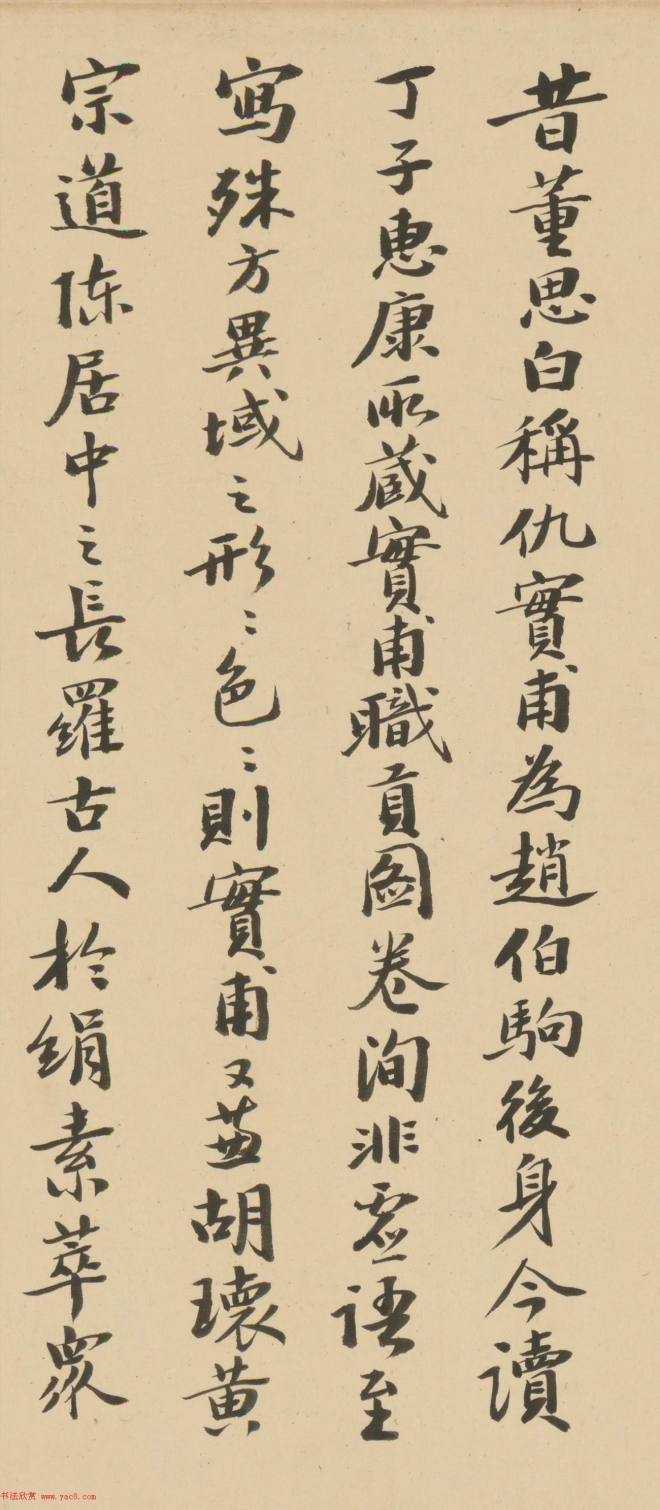 昔董思白稱仇實甫為趙伯駒後身今讀
丁子惠康所蔵實甫職貢圖卷洵非虛語至
寫殊方異域之形〻色〻則實甫又蓋胡瓌黄
宗道陈居中之長羅古人於絹素萃眾
书法欣赏 www.yac8.com